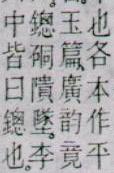 也各本作平
玉篇廣韵竟
鏓硐隤墜。李
中皆曰鏓也。